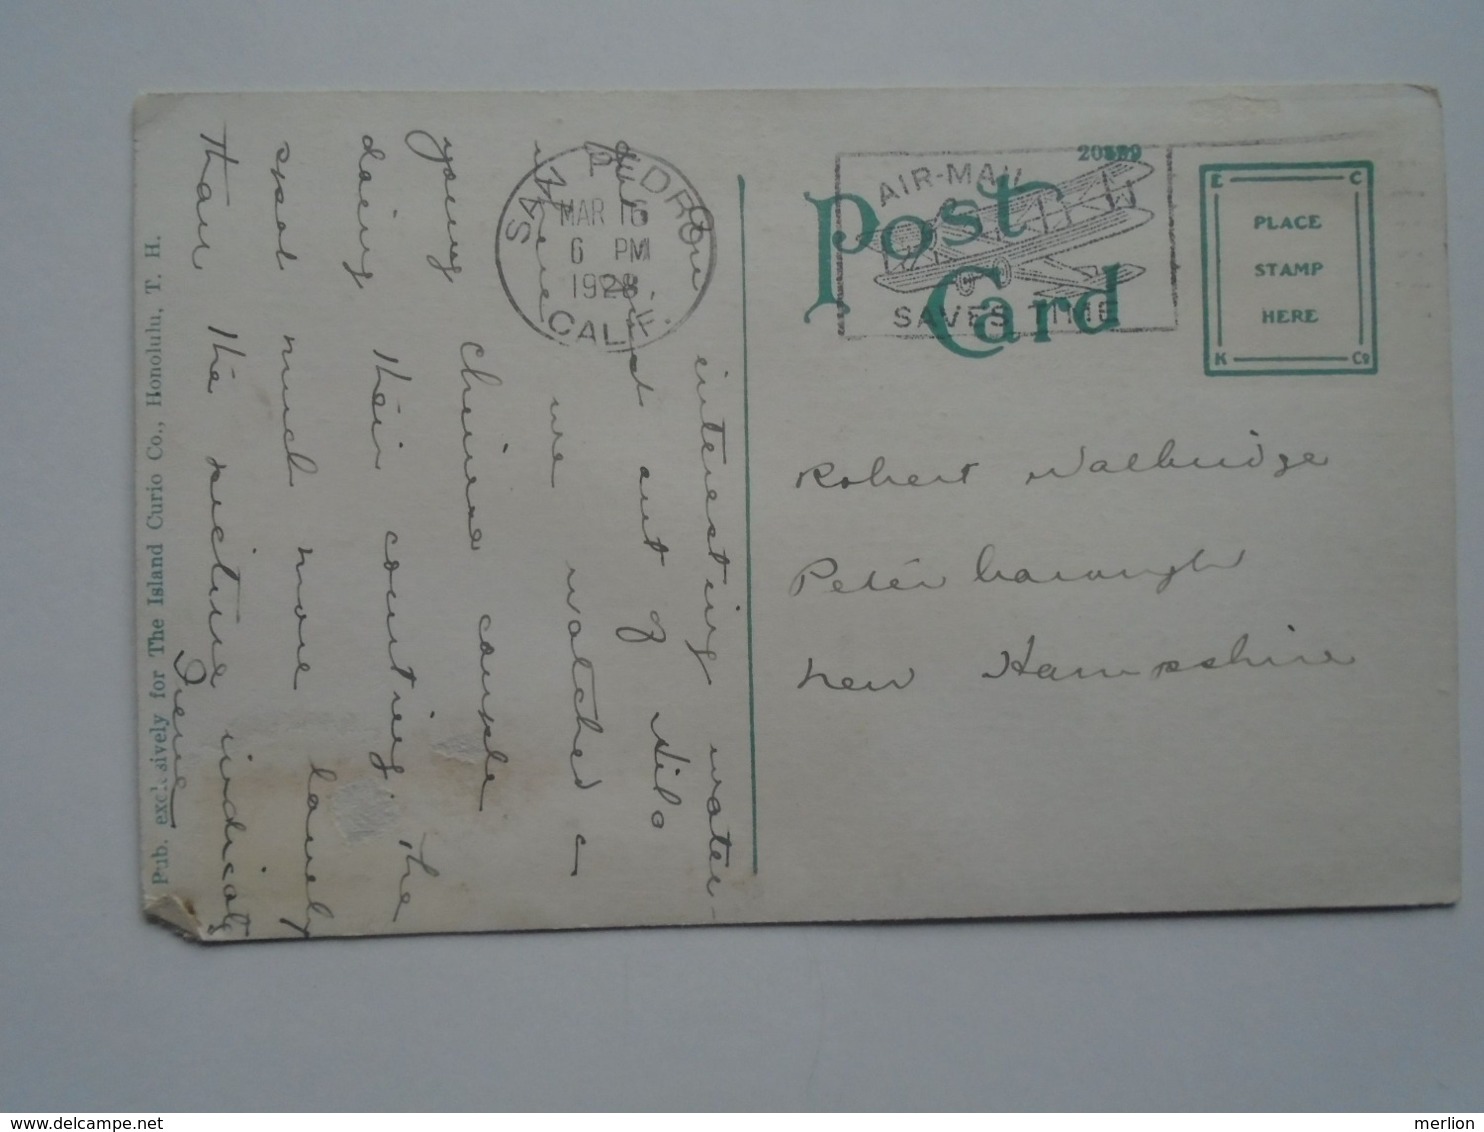 Our interesting water-
fall just out of Hilo
where we watched a
young Chinese couple
doing their courting. The
spot much more lovely
than the picture indicates
Irene
Pub. exclusively for The Island Curio Co., Honolulu, T. H.
SAN PEDRO
MAR 16
6 PM
1928
CALIF.
AIR-MAIL
SAVES TIME
Post
Card
E C
PLACE
STAMP
HERE
K Co
Robert Walbridge
Peterborough
New Hampshire
merlion